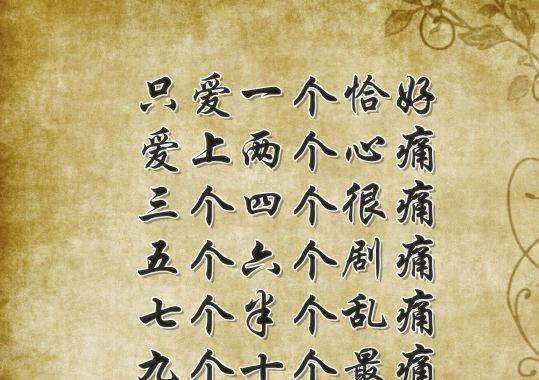 只爱一个恰好
爱上两个心痛
三个四个很痛
五个六个剧痛
七个半个乱痛
九个十个最痛